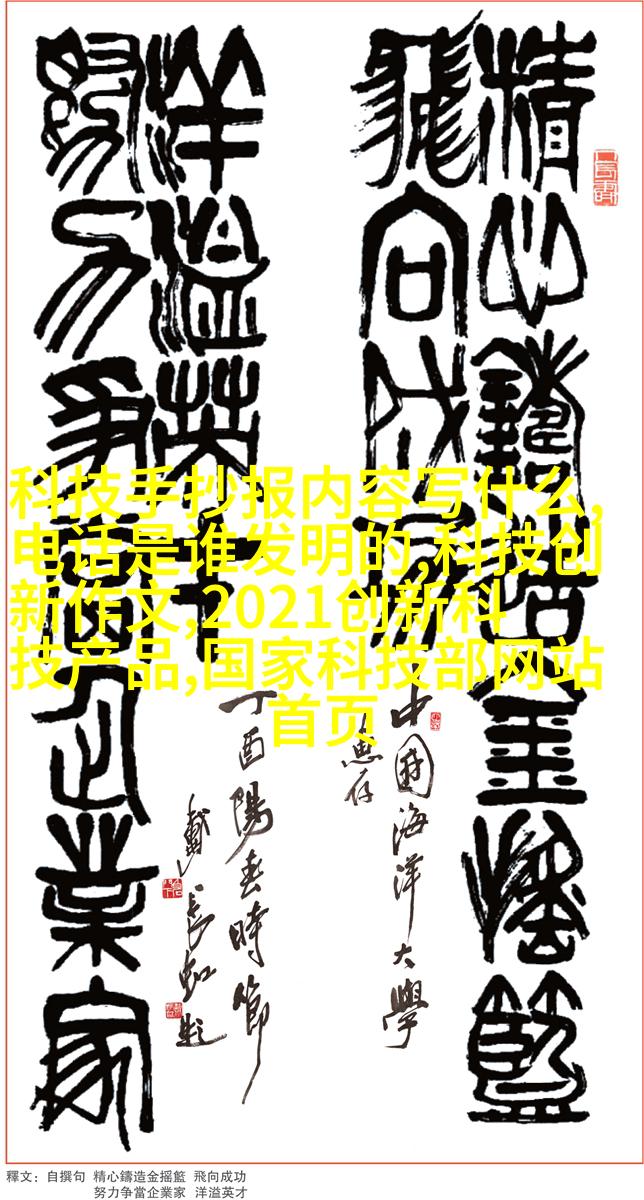 精心鑄造金搖籃
飛向成功
洋溢英才
努力争當企業家
科技手抄报内容写什么,
电话是谁发明的,科技创
新作文,2021创新科
技产品,国家科技部网站
首页
中國海洋大學
惠存
丁酉陽春時節
戴長虹題
釋文：自撰句 精心鑄造金摇籃 飛向成功
努力争當企業家 洋溢英才